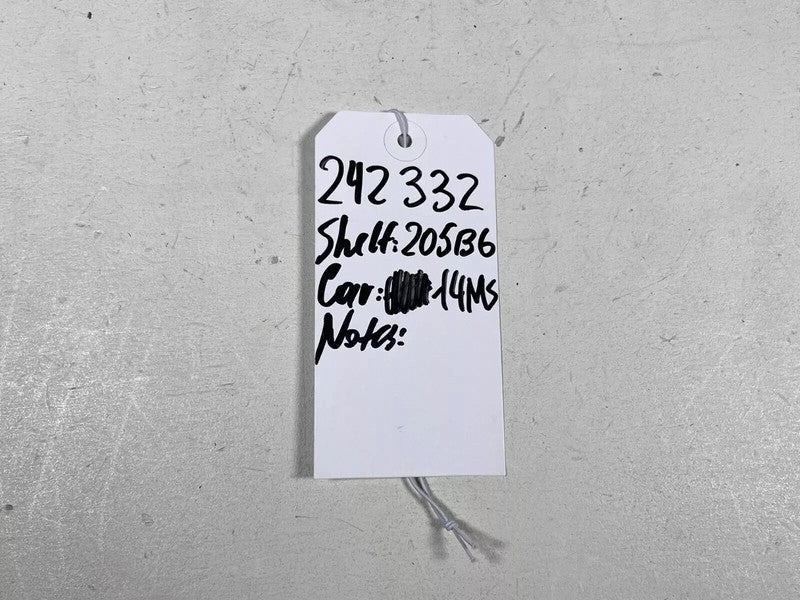 242 332
Shelf: 205B6
Car: 14MS
Notes: